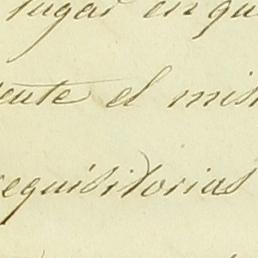 lugar en qu
iente el mis
requisitorias